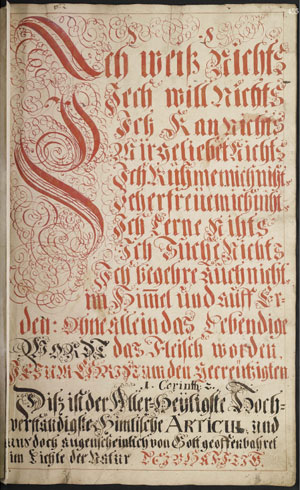 Ich weiß Nichts
Jech will Nichts
Ich Kan Nichts
Mir geliebet Nichts
Ich Rühme mich nicht.
Ich erfreue mich nicht.
Ich Lerne Nihts
Ich Suche Nichts
Ich begehre auch nicht.
im Himel und auff Er-
den: Ohne allein das Lebendige
WORT das Fleisch worden
JESUM CHRISTUM den Gecreutzigten
1. Corinth: 2.
Diß ist der Aller-Heyligste Hoch-
verständigste Himlische ARTICUL und
nur doch augenscheinlich von Gott geoffenbahret
im Lichte der Natur